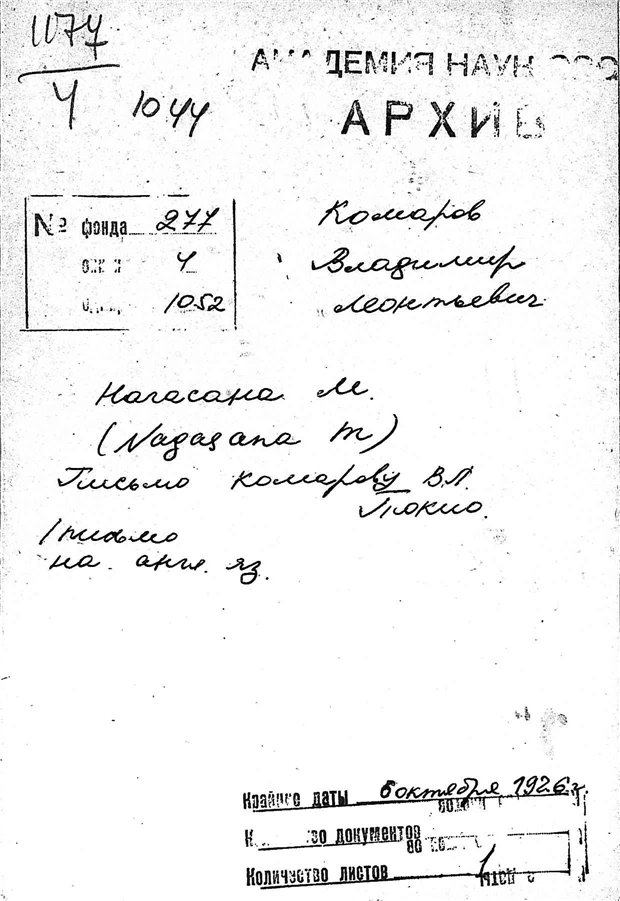 1077
4
1044
АКАДЕМИЯ НАУК СССР
АРХИВ
№ фонда 277
4
1052
Комаров
Владимир
Леонтьевич
Нагасана М.
(Nagasana M)
Письмо Комарову В.Л.
Токио.
1 письмо
на англ. яз.
Крайние даты 6 октября 1926 г.
документов
Количество листов 1